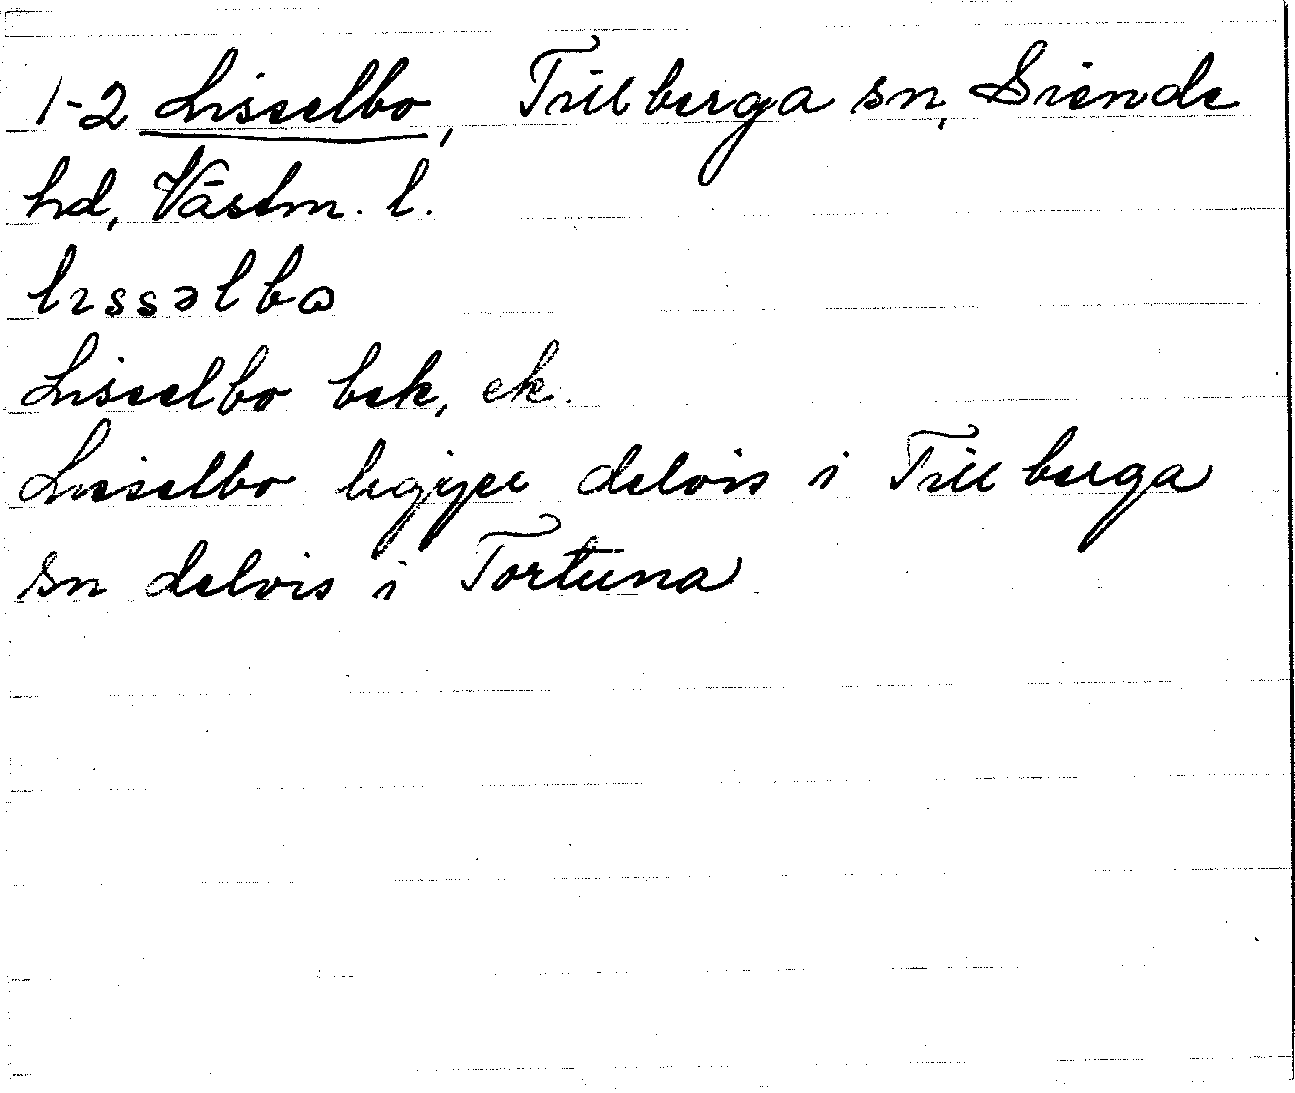 1-2 Lisselbo, Tillberga sn, Siende
hd, Västm. l.
lıssəlbɷ
Lisselbo bek, ek.
Lisselbo ligger delvis i Tillberga
sn delvis i Tortuna